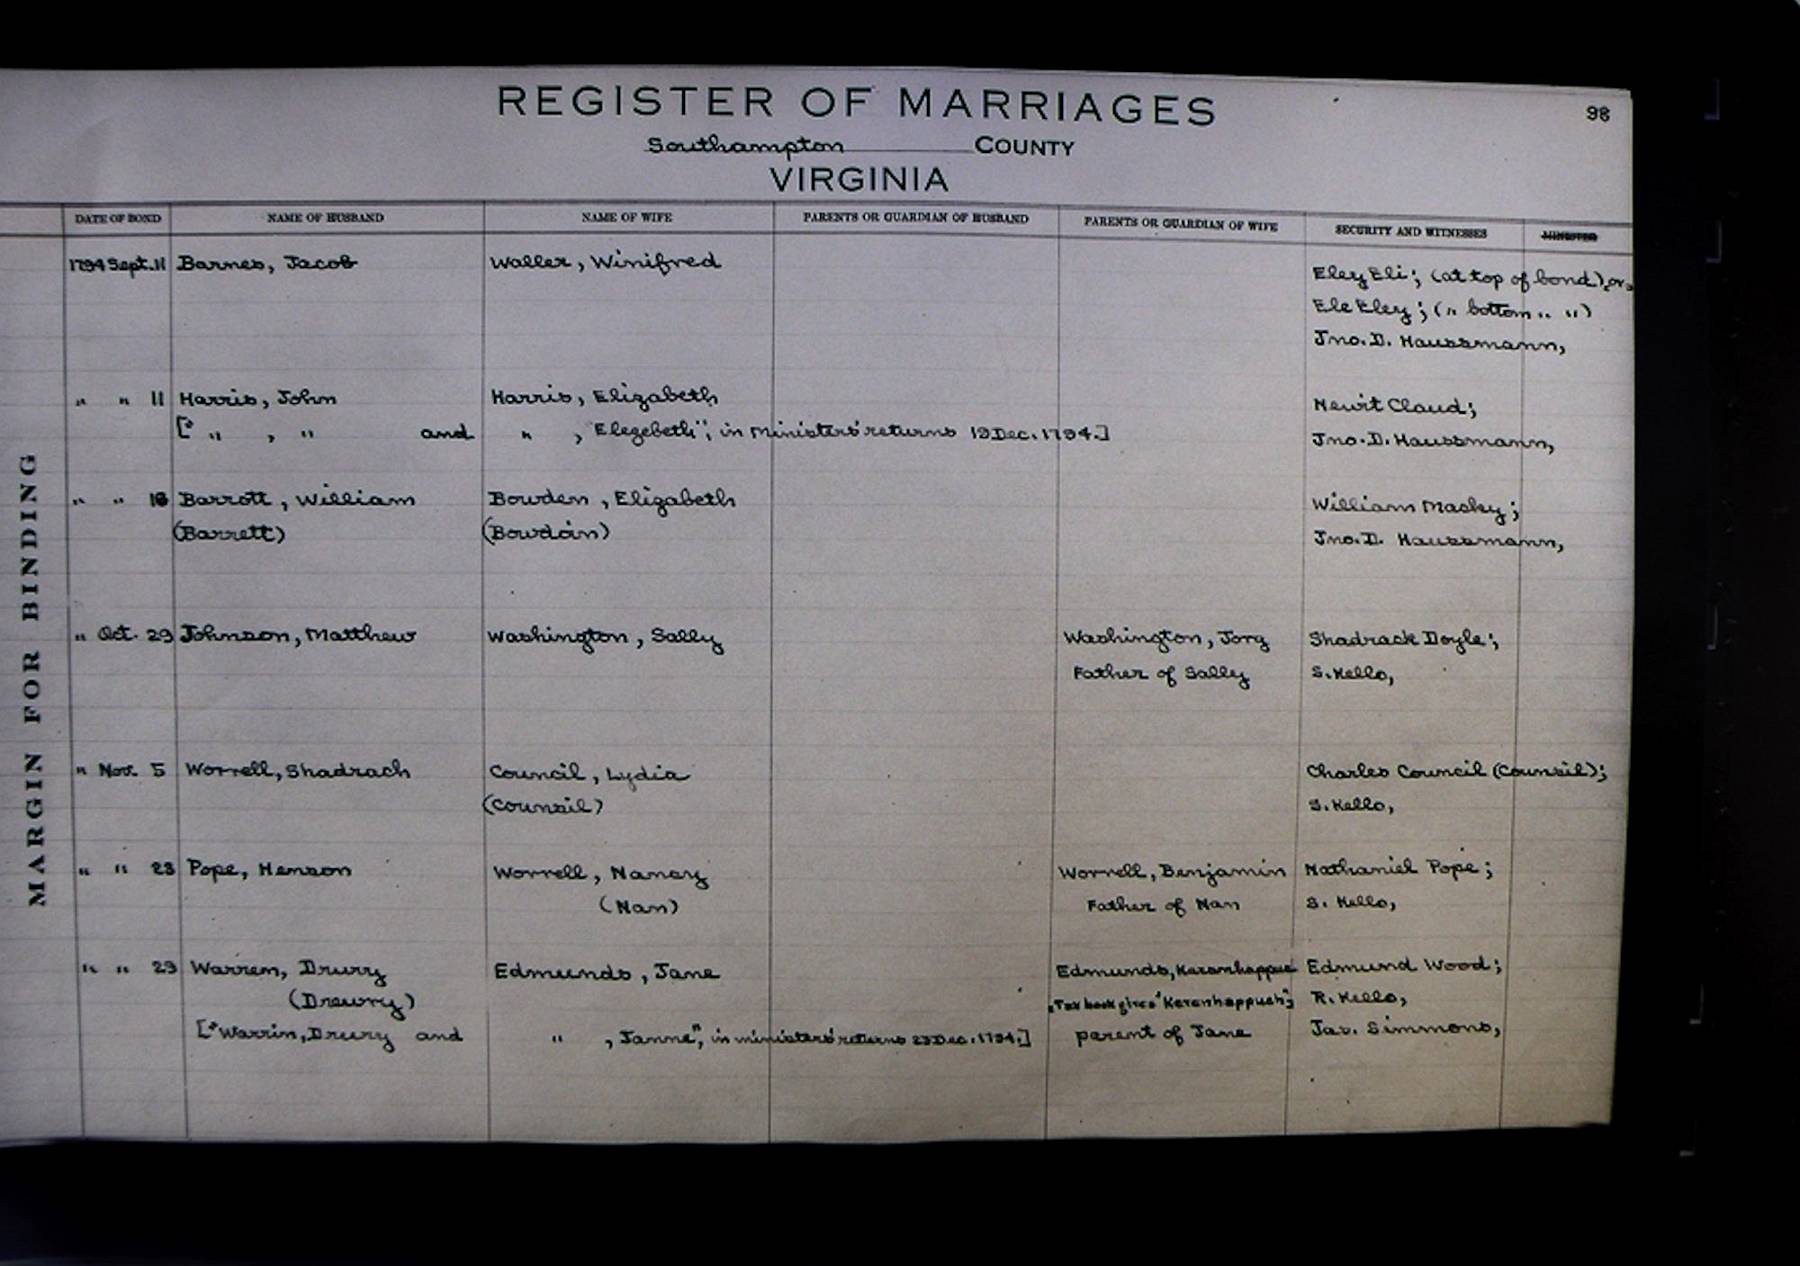 REGISTER OF MARRIAGES
98
Southampton COUNTY
VIRGINIA
DATE OF BOND NAME OF HUSBAND NAME OF WIFE PARENTS OR GUARDIAN OF HUSBAND PARENTS OR GUARDIAN OF WIFE SECURITY AND WITNESSES MINISTER
1794 Sept. 11 Barnes, Jacob Waller, Winifred Eley Eli; (at top of bond), or
Ele Eley; (" bottom " ")
Jno. D. Haussmann,
" " 11 Harris, John Harris, Elizabeth Newit Claud;
[" " , " and " , Elegebeth"; in Ministers' returns 19 Dec. 1794.] Jno. D. Haussmann,
" " 18 Barrott, William Bowden, Elizabeth William Masky;
(Barrett) (Bowdoin) Jno. D. Haussmann,
" Oct. 29 Johnson, Matthew Washington, Sally Washington, Jorg Shadrack Doyle;
Father of Sally S. Kello,
" Nov. 5 Worrell, Shadrach Council, Lydia Charles Council (Counsil);
(Counsil) S. Kello,
" " 23 Pope, Henson Worrell, Nancy Worrell, Benjamin Nathaniel Pope;
(Nan) Father of Nan S. Kello,
" " 29 Warren, Drury Edmunds, Jane Edmunds, Karanhappue Edmund Wood;
(Drewry) Tax book gives "Keranhappuch"; R. Kello,
["Warrin, Drury and " , Janne", in ministers' returns 23 Dec. 1794.] parent of Jane Jas. Simmons,
MARGIN FOR BINDING